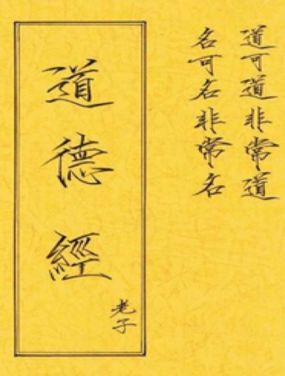 道可道非常道
名可名非常名
道德經
老子